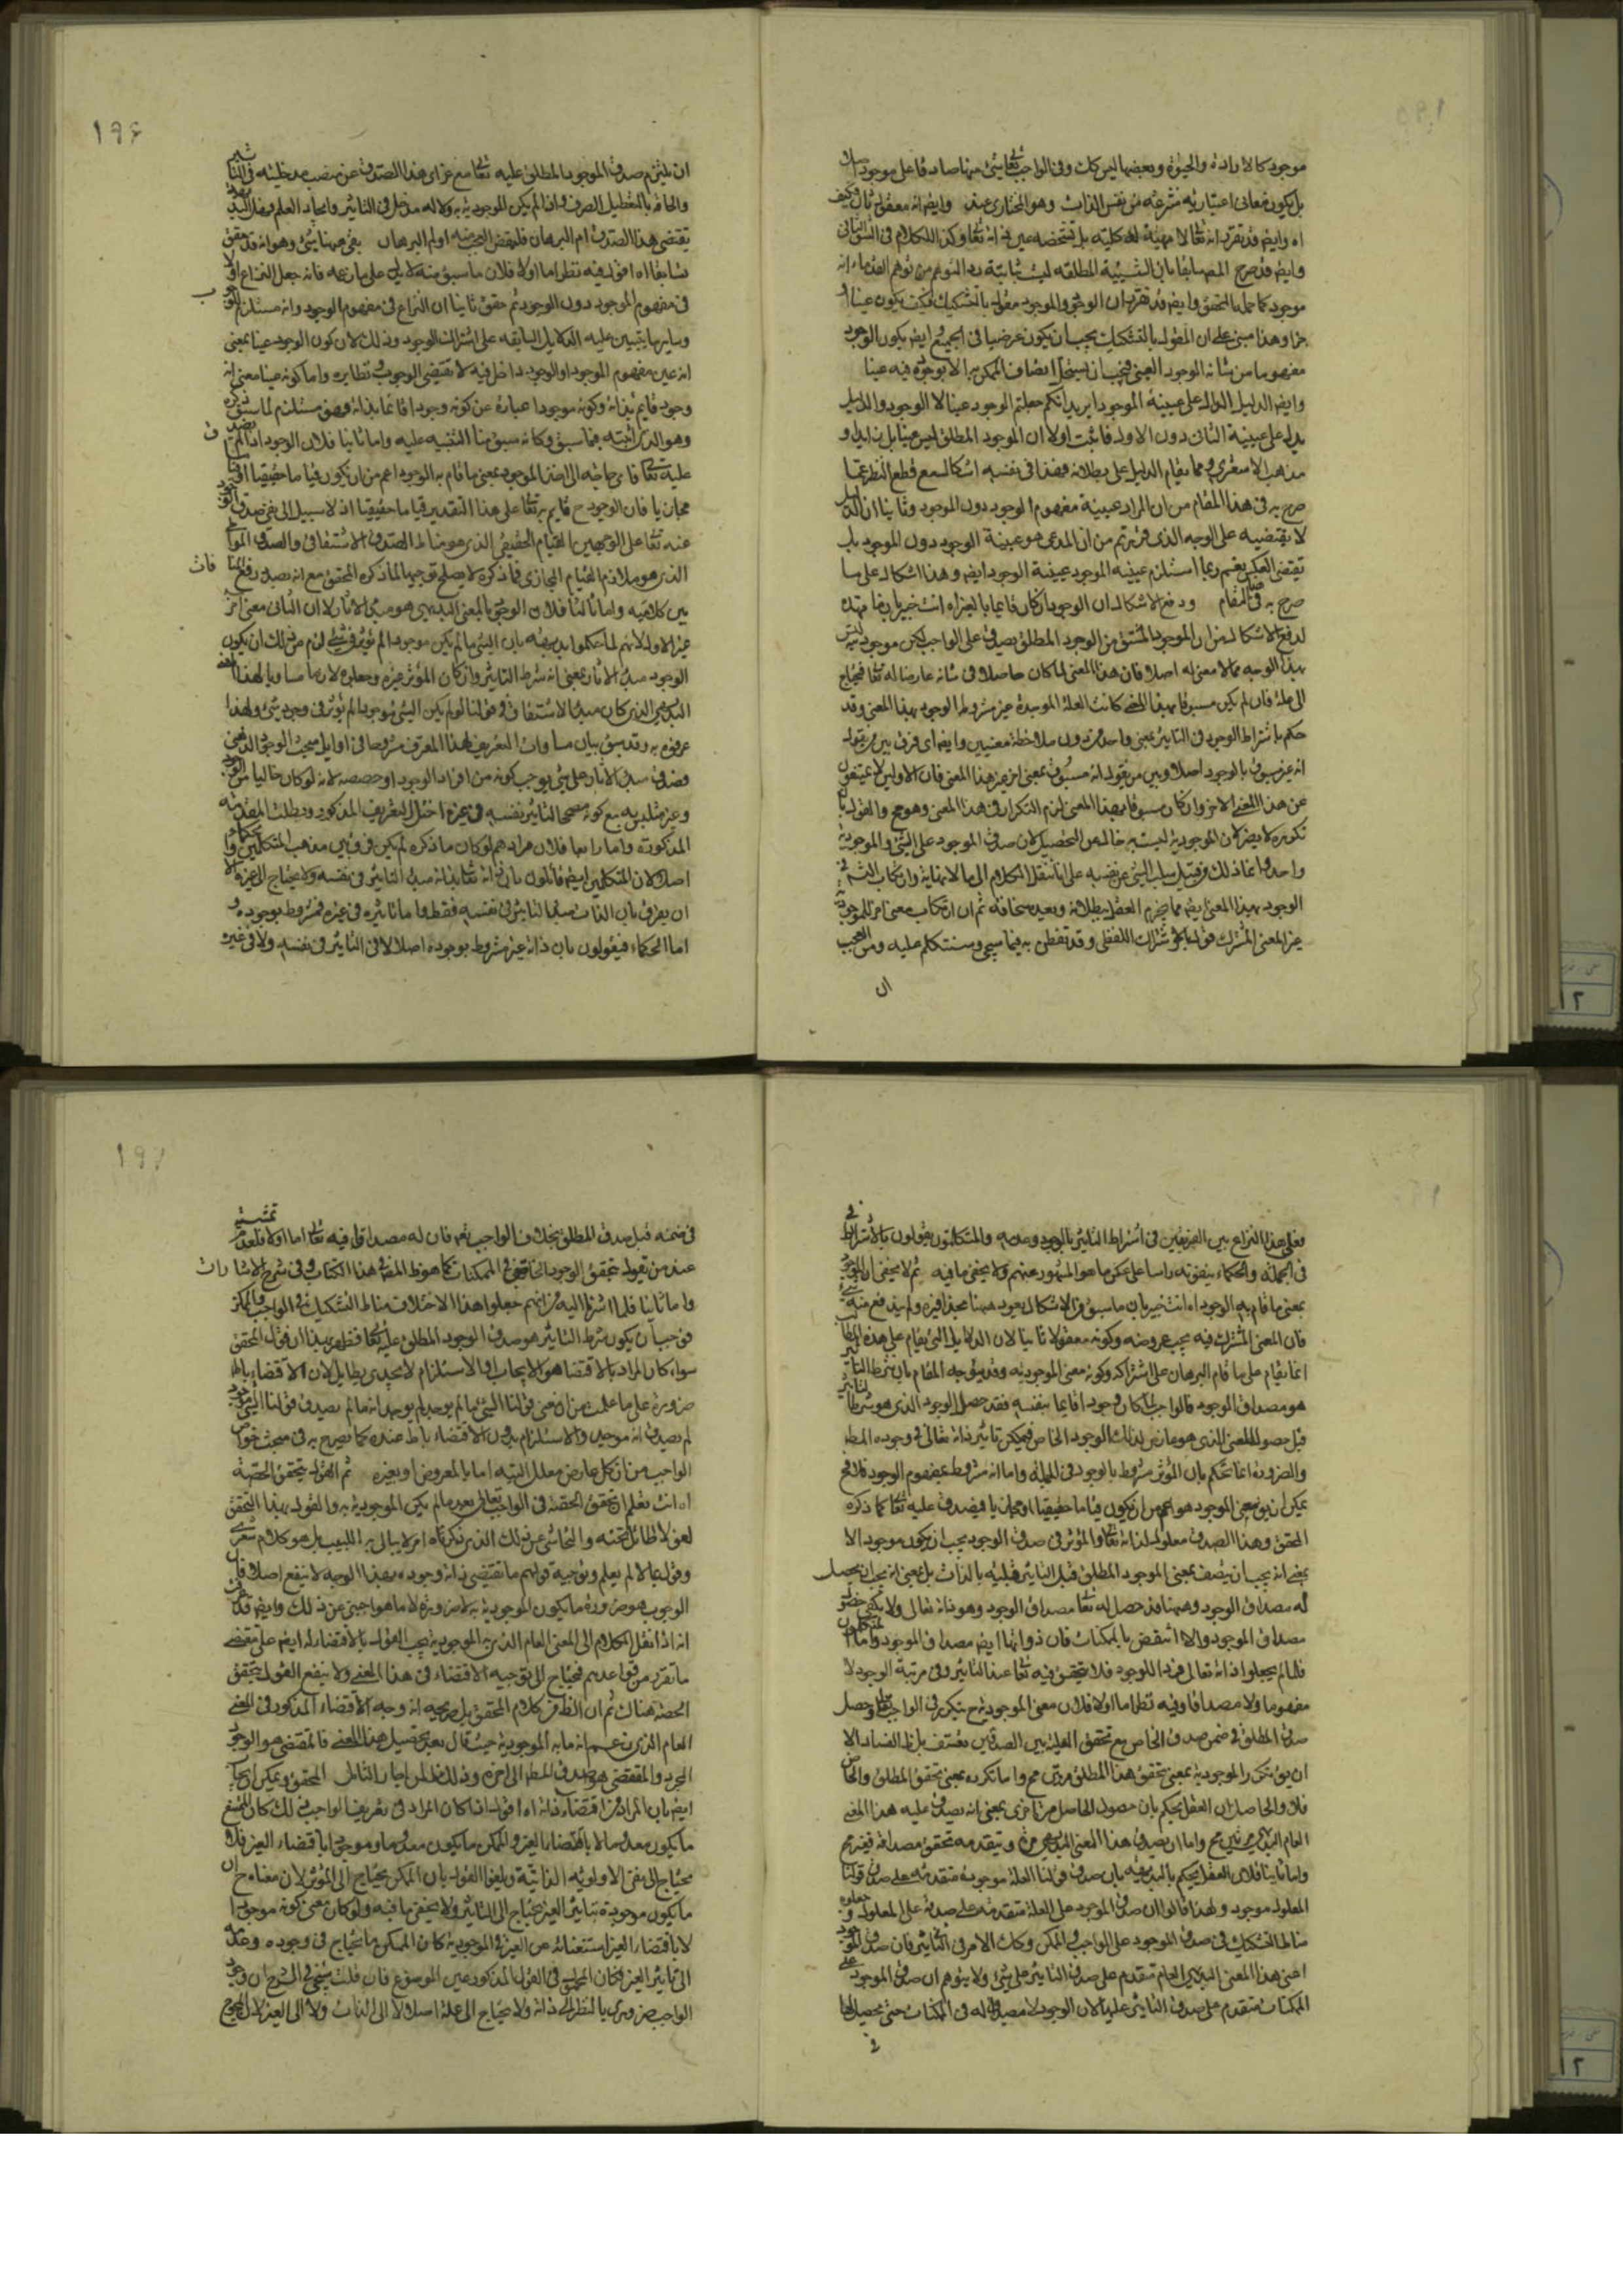 موجود كالارادة والحيوة وبعضها ليس كك وفى الواجب تعا ليس شئ منها صادقا على موجود
بل يكون معانى اعتبارية منتزعة من نفس الذات وهو المختار عند وايضا انه معقول ثان فكيف
اه وايضا قد تقرر انه تعا لا مهية له كلية بل تشخصه عين ذاته تعا وكذا الكلام فى الشق الثانى
وايضا قد صرح المص سابقا بان الشيئية المطلقه ليست ثابتة
موجود كما حمله المحقق وايضا قد تقرر ان الوجود والموجود مقول بالتشكيك فكيف يكون عينا او
جزا وهذا مبنى على ان المقول بالتشكيك يجب ان يكون عرضيا فى الجميع ايضا يكون الوجود
مفهوما من شانه الوجود العينى فيجب ان يستحيل اتصاف الممكن به الا بوجود فيه عينا
وايضا الدليل الدال على عينية الموجود ايريد انكم جعلتم الوجود عينا لا الوجود والدليل
يدل على عينية الثانى دون الاول فاثبت اولا ان الموجود المطلق ليس عينا بل زايدا و
مذهب الاشعرى مما يقام الدليل على بطلانه فهذا فى نفسه اشكال مع قطع النظر عما
صرح به فى هذا المقام من ان المراد عينية مفهوم الوجود دون الموجود وثانيا ان الدليل
لا يقتضيه على الوجه الذى قررتم من ان المدعى هو عينية الوجود دون الموجود بل
يقتضى العكس نعم ربما استلزم عينية الموجود عينية الوجود ايضا وهذا اشكال على ما
صرح به فى المقام ودفع الاشكال ان الوجود اذا كان قائما بالغير اه انت خبير بان ما مهده
لدفع الاشكال من ان الموجود المشتق من الوجود المطلق يصدق على الواجب لكن موجود ليس
بهذا الوجه مما لا معنى له اصلا فان هذا المعنى لما كان حاصلا فى شانه عارضا له تعا فيحتاج
الى علة فان لم يكن مسبوقا بهذا المعنى كانت العلة الموجدة غير مشروط الوجود بهذا المعنى وقد
حكم باشتراط الوجود فى التاثير بمعنى واحد من دون ملاحظة معنيين وايضا اى فرق بين من يقول
انه غير مسبوق بالوجود اصلا وبين من يقول انه مسبوق بمعنى اخر غير هذا المعنى فان الاولين لا
عن هذا المعنى الاخر وان كان مسبوقا بهذا المعنى لزم التكرار فى هذا المعنى وهو مح والقول بان
تكرره لا يضر لان الموجودية ليست به خال عن التحصيل لان صدق الموجود على الشئ والموجودية
واحد وانما ذلك من قبيل سلب الشئ عن نفسه على انا ننقل الكلام الى ما لا نهاية وارتكاب التسلسل فى
الوجود بهذا المعنى ايضا مما يجزم العقل ببطلانه وبعد سخافته ثم ان ارتكاب معنى اخر للموجودية
غير المعنى المشترك قول بالاشتراك اللفظى وقد تفطن به فيما سيجئ وسنتكلم عليه ومن العجب
ان
١٩٦
ان يلتزم صدق الموجود المطلق عليه تعا مع عزل هذا الصدق عن منصب مدخليته فى التاثير
والحاقه بالتعطيل الصرف واذا لم يكن للموجودية به ولا له مدخل فى التاثير وايجاد العلم
يقتضى هذا الصدق ام البرهان فليقتض العينية اولم البرهان بقى ههنا شئ وهو انه قد حقق
سابقا اه اقول فيه نظر اما اولا فلان ما سبق منه لا يدل على ما زعمه فانه جعل النزاع اولا
فى مفهوم الموجود دون الوجود ثم حقق ثانيا ان النزاع فى مفهوم الوجود وانه مستلزم
وسايرها يتبين عليه الدلايل السابقه على اشتراك الوجود وذلك لان كون الوجود عينا بمعنى
انه عين مفهوم الموجود او الوجود داخل فيه لا يقتضى الوجوب فى نظايره واما كونه عينا بمعنى انه
وجود قايم بذاته وكونه موجودا عبارة عن كونه وجودا قائما بذاته فهو مستلزم لما سبق ذكره
وهو الذى اثبته فيما سبق وكانه سبق منا التنبيه عليه واما ثانيا فلان الوجود اذا لم يصدق
عليه تعا فاى حاجة الى اخذ الموجود بمعنى ما قام به الوجود اعم من ان يكون قياما حقيقيا او قياما
مجازيا فان الوجود ح قايم به تعا على هذا التقدير قياما حقيقيا اذ لا سبيل الى نفى صدق الوجود
عنه تعا على الوجهين بالقيام الحقيقى الذى هو مناط الصدق الاشتقاقى والصدق المواطاتى
الذى هو ملازم القيام المجازى فما ذكره لا يصلح توجيها لما ذكره المحقق مع انه بصدد رفع المنافات
بين كلاميه واما ثالثا فلان الوجود بالمعنى البديهى هو مبدء الاثار لا ان الثانى معنى اخر
غير الاول لانهم لما حكموا بديهة بان الشئ ما لم يكن موجودا لم يؤثر فى شئ لزم من ذلك ان يكون
الوجود مبدء الاثار بمعنى انه شرط التاثير وان كان المؤثر غيره وجعلوه لازما مساويا لهذا المعنى
البديهى الذى كان مبدء الاشتقاق فى قولنا لو لم يكن الشئ موجودا لم يؤثر فى وجود شئ ولهذا
عرفوه به وقد سبق بيان مساوات التعريف لهذا المعرف مشروحا فى اوايل مبحث الوجود الذهنى
فصدق مبدء الاثار على شئ يوجب كونه من افراد الوجود او حصصه لانه لو كان خاليا من الوجود
وغير متلبس به مع كونه مصححا لتاثير نفسه فى غيره اختل التعريف المذكور وبطلت المقدمة
المذكورة واما رابعا فلان مرادهم لو كان ما ذكره لم يكن فرق بين مذهب المتكلمين
اصلا لان المتكلمين ايضا قائلون بان ذاته تعا بذاته مبدء التاثير فى نفسه ولا يحتاج الى غيره الا
ان يفرق بان الذات مبدء التاثير فى نفسه فقط واما تاثيره فى غيره فمشروط بوجوده و
اما الحكماء فيقولون بان ذاته غير مشروط بوجوده اصلا لا فى التاثير فى نفسه ولا فى غيره
فعلى هذا النزاع بين الفريقين فى اشتراط التاثير بالوجود وعدمه والمتكلمون يقولون بالاشتراط
فى الجملة والحكماء ينفونه راسا على عكس ما هو المشهور عنهم ولا يخفى ما فيه ثم لا يخفى ان الموجود
بمعنى ما قام به الوجود اه انت خبير بان ما سبق من الاشكال يعود ههنا بحذافيره ولم يندفع منه شئ
فان المعنى المشترك فيه يجب عروضه وكونه معقولا ثانيا لان الدلايل التى يقام على هذه المطالب
انما يقام على ما قام البرهان على اشتراكه وكونه معنى الموجودية وقد يتوجه المقام بان شرط التاثير
هو مصداق الوجود فالواجب لما كان وجودا قائما بنفسه فقد حصل الوجود الذى هو شرط التاثير
قبل حصول المعنى الذى هو عارض لذلك الوجود الخاص فيمكن تاثير ذاته تعالى فى وجوده المطلق
والضرورة انما تحكم بان المؤثر مشروط بالوجود فى الجملة واما انه مشروط بمفهوم الوجود فلا فح
يمكن ان يق معنى الموجود هو اعم من ان يكون قياما حقيقيا او مجازيا فيصدق عليه تعا كما ذكره
المحقق وهذا الصدق معلول لذاته تعا والمؤثر فى صدق الوجود يجب ان يكون موجودا لا
بمعنى انه يجب ان يتصف بمعنى الموجود المطلق قبل التاثير قبلية بالذات بل بمعنى انه يجب ان يحصل
له مصداق الوجود وههنا قد حصل له تعا مصداق الوجود وهو ذاته تعالى ولا يكفى حضور
مصداق الموجود والا انتقض بالممكنات فان ذواتها ايضا مصداق الموجود واما المتكلمون
فلما لم يجعلوا ذاته تعالى فردا للوجود فلا يتحقق فيه تعا عند التاثير وفى مرتبة الوجود لا
مفهوما ولا مصداقا وفيه نظر اما اولا فلان معنى الموجودية ح يتكرر فى الواجب تعا وحصل
صدق المطلق فى ضمن صدق الخاص مع تحقق العلية بين الصدقين معترف بل ظ الفساد الا
ان يق تكرر الموجودية بمعنى تحقق هذا المطلق مرتين مح واما تكرره بمعنى تحقق المطلق والخاص
فلا والحاصل ان العقل يحكم بان حصول الحاصل مرة اخرى بمعنى انه يصدق عليه هذا المعنى
العام البديهى مرتين مح واما ان يصدق هذا المعنى البديهى مرة ويتقدمه تحقق مصداقه فغير مح
واما ثانيا فلان العقل يحكم بالبديهة بان صدق قولنا العلة موجودة متقدمة على صدق قولنا
المعلول موجود ولهذا قالوا ان صدق الموجود على العلة متقدمة على صدقه على المعلول وجعلوه
مناط التشكيك فى صدق الموجود على الواجب والممكن وكك الامر فى التاثير فان صدق الموجود
اعنى هذا المعنى البديهى العام متقدم على صدق التاثير على شئ ولا يتوهم ان صدق الموجود على
الممكنات متقدم على صدق التاثير عليها لان الوجود لا مصداق له فى الممكنات حتى يحصل
فى
١٩٧
فى ضمنه قبل صدق المطلق بخلاف الواجب تعه فان له مصداقا وفيه نظر اما اولا فلعدم تمشيته
عند من يقول بتحقق الوجود الخاص فى الممكنات كما هو ظ المص فى هذا الكتاب وفى شرح الاشارات
واما ثانيا فلما اشرنا اليه من انهم جعلوا هذا الاختلاف مناط التشكيك فى الواجب والممكن
فوجب ان يكون شرط التاثير هو صدق الوجود المطلق عليه تعا فظهر بهذا ان قول المحقق
سواء كان المراد بالاقتضا هو الايجاب او الاستلزام لا يجدى بطايل لان الاقتضاء باطل
ضرورة على ما علمت من ان معنى قولنا الشئ ما لم يوجد لم يوجد انه ما لم يصدق قولنا الشئ موجود
لم يصدق انه موجد والاستلزام بدون الاقتضاء باطل عنده كما يصرح به فى مبحث خواص
الواجب من ان كل عارض معلل البته اما بالمعروض او بغيره ثم القول بتحقق الحصة
اه انت تعلم ان تحقق الحصة فى الواجب تعالى بعد ما لم يكن الموجودية به والقول بهذا التحقق
لغو لا طائل تحته والتحاشى عن ذلك الذى ذكرناه امر لا يبالى به اللبيب بل هو كلام شعرى
وقول بما لا لم يعلم وتوجيه قولهم ما يقتضى ذاته وجوده بهذا الوجه لا ينفع اصلا فان
الوجوب هو ضرورة ما يكون الموجودية به لا ضرورة ما هو اجنبى عن ذلك وايضا قد عرفت
انه اذا نقل الكلام الى المعنى العام الذى به الموجودية يجب القول بالاقتضاء له ايضا على مقتضى
ما تقرر من قواعدهم فيحتاج الى توجيه الاقتضاء فى هذا المعنى ولا ينفع القول بتحقق
الحصة هناك ثم ان الظ من كلام المحقق بل صريحه انه وجه الاقتضاء المذكور فى المعنى
العام الذى زعم انه ما به الموجودية حيث قال بعد تحصيل هذا المعنى فالمقتضى هو الوجود
المجرد والمقتضى هو صدق المطلق الى اخره وذلك ظ لمن اجاد التامل المحقق ويمكن ان يجاب
ايضا بان المراد من اقتضاء ذاته اه اقول اذا كان المراد فى تعريف الواجب ذلك كان الممتنع
ما يكون معدوما لا باقتضاء الغير والممكن ما يكون معدوما وموجودا باقتضاء الغير فلا
يحتاج الى نفى الاولوية الذاتية ويلغو القول بان الممكن يحتاج الى المؤثر لان معناه ح ان
ما يكون موجودية بتاثير الغير يحتاج الى التاثير ولا يخفى ما فيه ولو كان معنى كونه موجودا
لا باقتضاء الغير استغنائه عن الغير فى الموجودية كان الممكن ما يحتاج فى وجوده وعدمه
الى تاثير الغير فكان المحمول فى القول المذكور عين الموضوع فان قلت سيجئ فى الشرح ان وجود
الواجب ضرورى بالنظر الى ذاته ولا يحتاج الى علة اصلا لا الى الذات ولا الى الغير